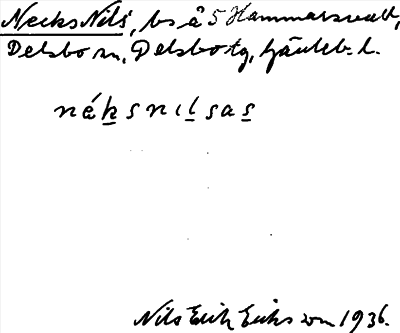 Necks Nils, bs å 5 Hammarsvall,
Delsbo sn, Delsbo tg, Gävleb. l.
néksnılsas
Nils Erik Eriksson 1936.